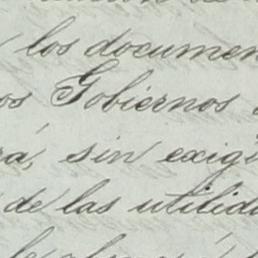 los documen
os Gobiernos
rá, sin exigi
de las utilida